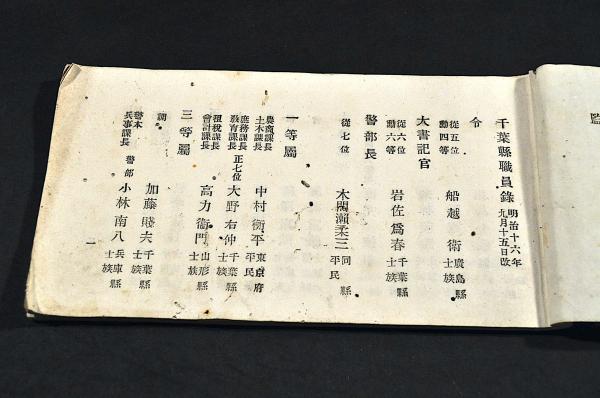 監
千葉縣職員錄 明治十六年九月十五日改
令
從五位勳四等 船越衛 廣島縣士族
大書記官
從六位勳六等 岩佐爲春 千葉縣士族
警部長
從七位 木間瀨柔三 同縣平民
一等屬
農商課長土木課長 中村衡平 東京府平民
庶務課長敎育課長 正七位 大野右仲 千葉縣士族
租稅課長會計課長 高力衞門 山形縣士族
三等屬
加藤賤夫 千葉縣士族
兵事課長 警部 小林南八 兵庫縣士族
一